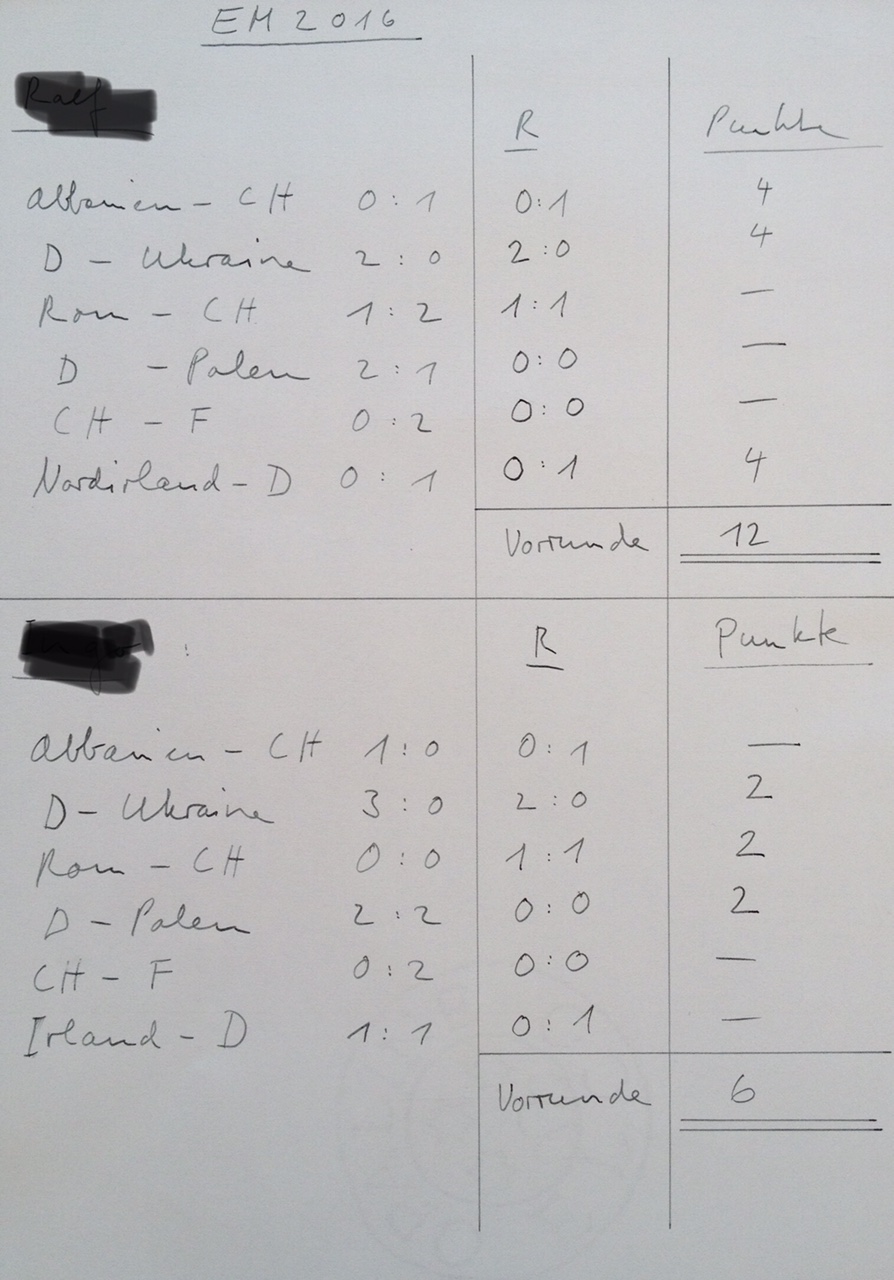 EM 2016
R Punkte
Albanien - CH 0:1 0:1 4
D - Ukraine 2:0 2:0 4
Rom - CH 1:2 1:1 —
D - Polen 2:1 0:0 —
CH - F 0:2 0:0 —
Nordirland - D 0:1 0:1 4
Vorrunde 12
: R Punkte
Albanien - CH 1:0 0:1 —
D - Ukraine 3:0 2:0 2
Rom - CH 0:0 1:1 2
D - Polen 2:2 0:0 2
CH - F 0:2 0:0 —
Irland - D 1:1 0:1 —
Vorrunde 6